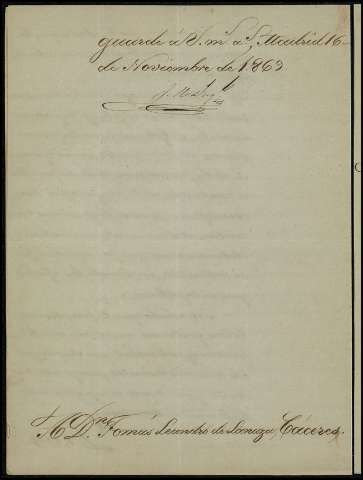 guarde á S. m. a.s Madrid 16
de Noviembre de 1863
A D.n Tomás Leandro de Lanuza, Cáceres.